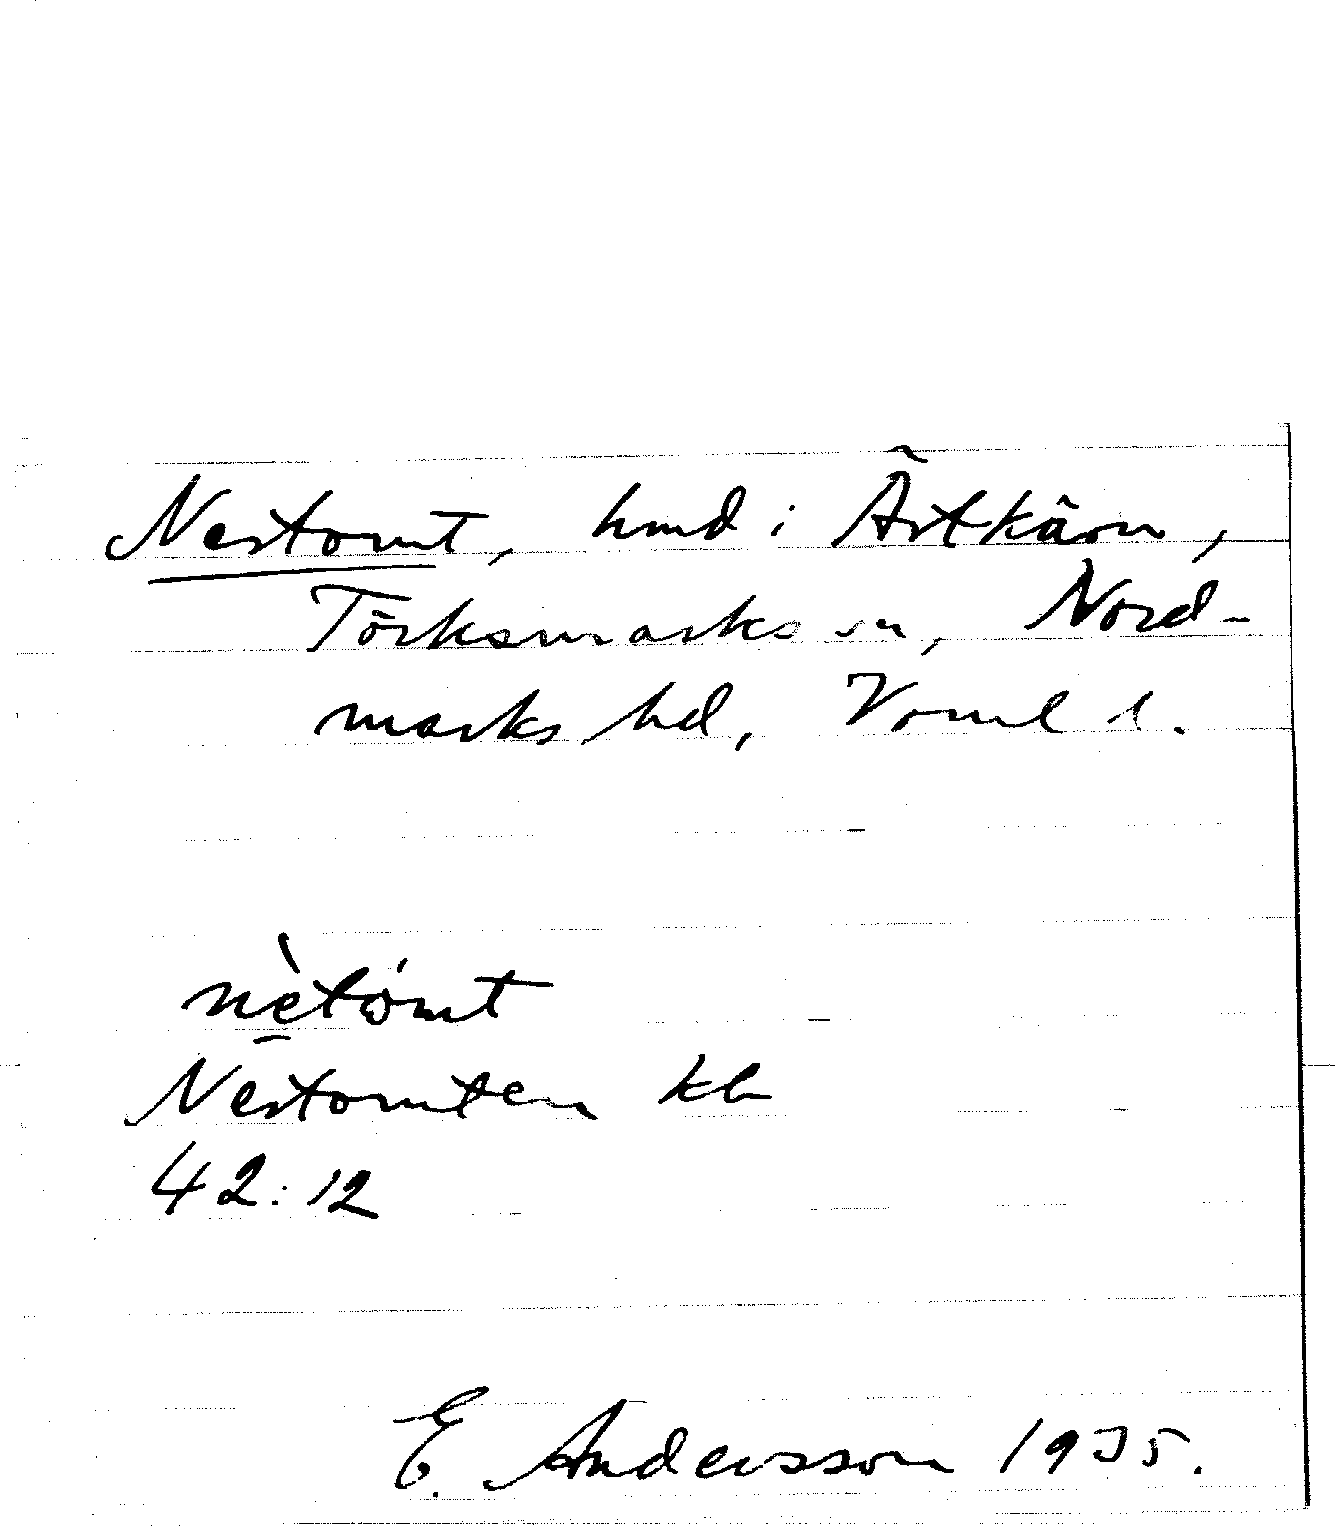 Nertomt, hmd i Ärtkärn,
Törksmarks sn, Nord-
marks hd, Värml l.
nètómt
Nertomten kb
42:12
E. Andersson 1935.